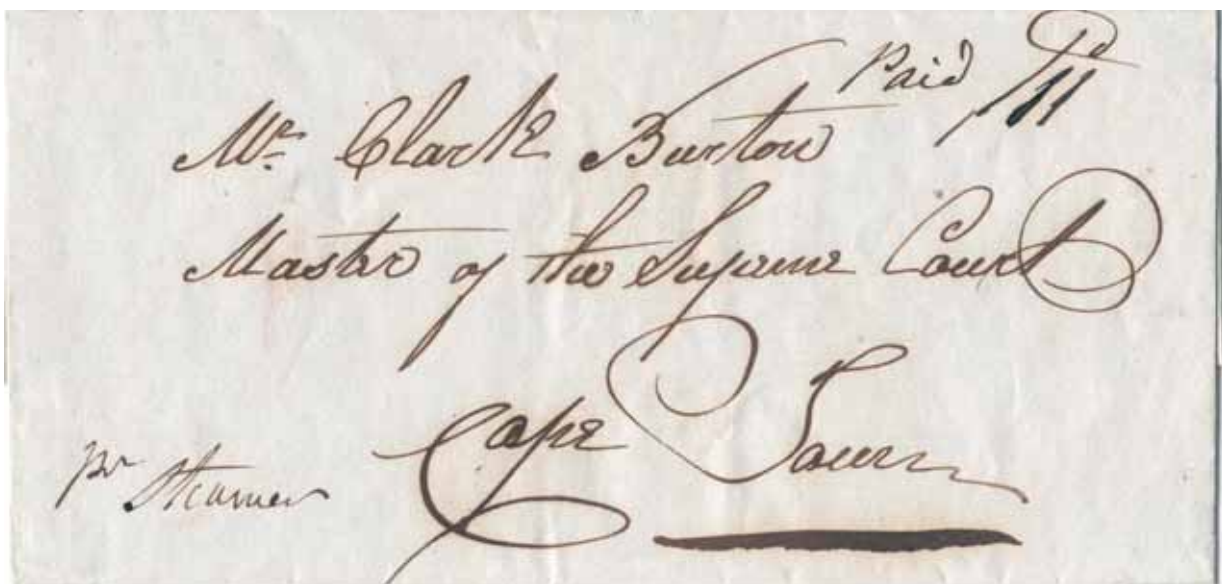 Paid
Mr. Clark Burton
Master of the Supreme Court
Cape Town
pr Steamer